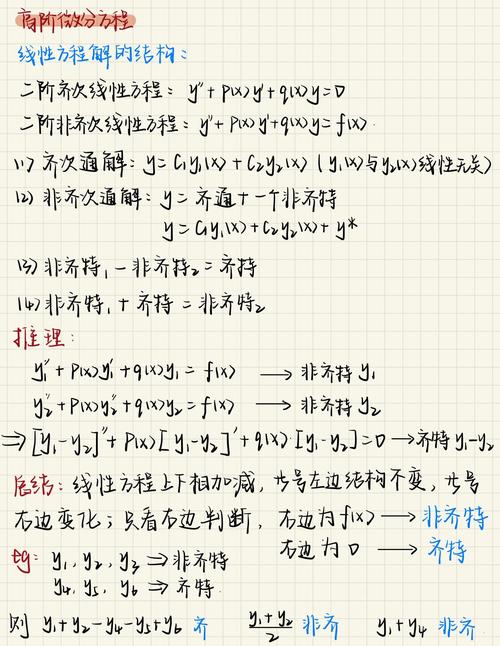 高阶微分方程
线性方程解的结构：
二阶齐次线性方程：y''+p(x)y'+q(x)y=0
二阶非齐次线性方程：y''+p(x)y'+q(x)y=f(x)
(1) 齐次通解：y=C₁y₁(x)+C₂y₂(x)（y₁(x)与y₂(x)线性无关）
(2) 非齐次通解：y=齐通+一个非齐特
y=C₁y₁(x)+C₂y₂(x)+y*
(3) 非齐特₁-非齐特₂=齐特
(4) 非齐特₁+齐特=非齐特₂
推理：
y₁''+p(x)y₁'+q(x)y₁=f(x) → 非齐特 y₁
y₂''+p(x)y₂'+q(x)y₂=f(x) → 非齐特 y₂
⇒[y₁-y₂]''+p(x)[y₁-y₂]'+q(x)·[y₁-y₂]=0→齐特y₁-y₂
总结：线性方程上下相加减，等号左边结构不变，等号
右边变化；只看右边判断，右边为f(x)→非齐特
右边为0→齐特
eg：y₁, y₂, y₃⇒非齐特
y₄, y₅, y₆⇒齐特
则 y₁+y₂-y₄-y₅+y₆ 齐 (y₁+y₂)/2 非齐 y₁+y₄ 非齐